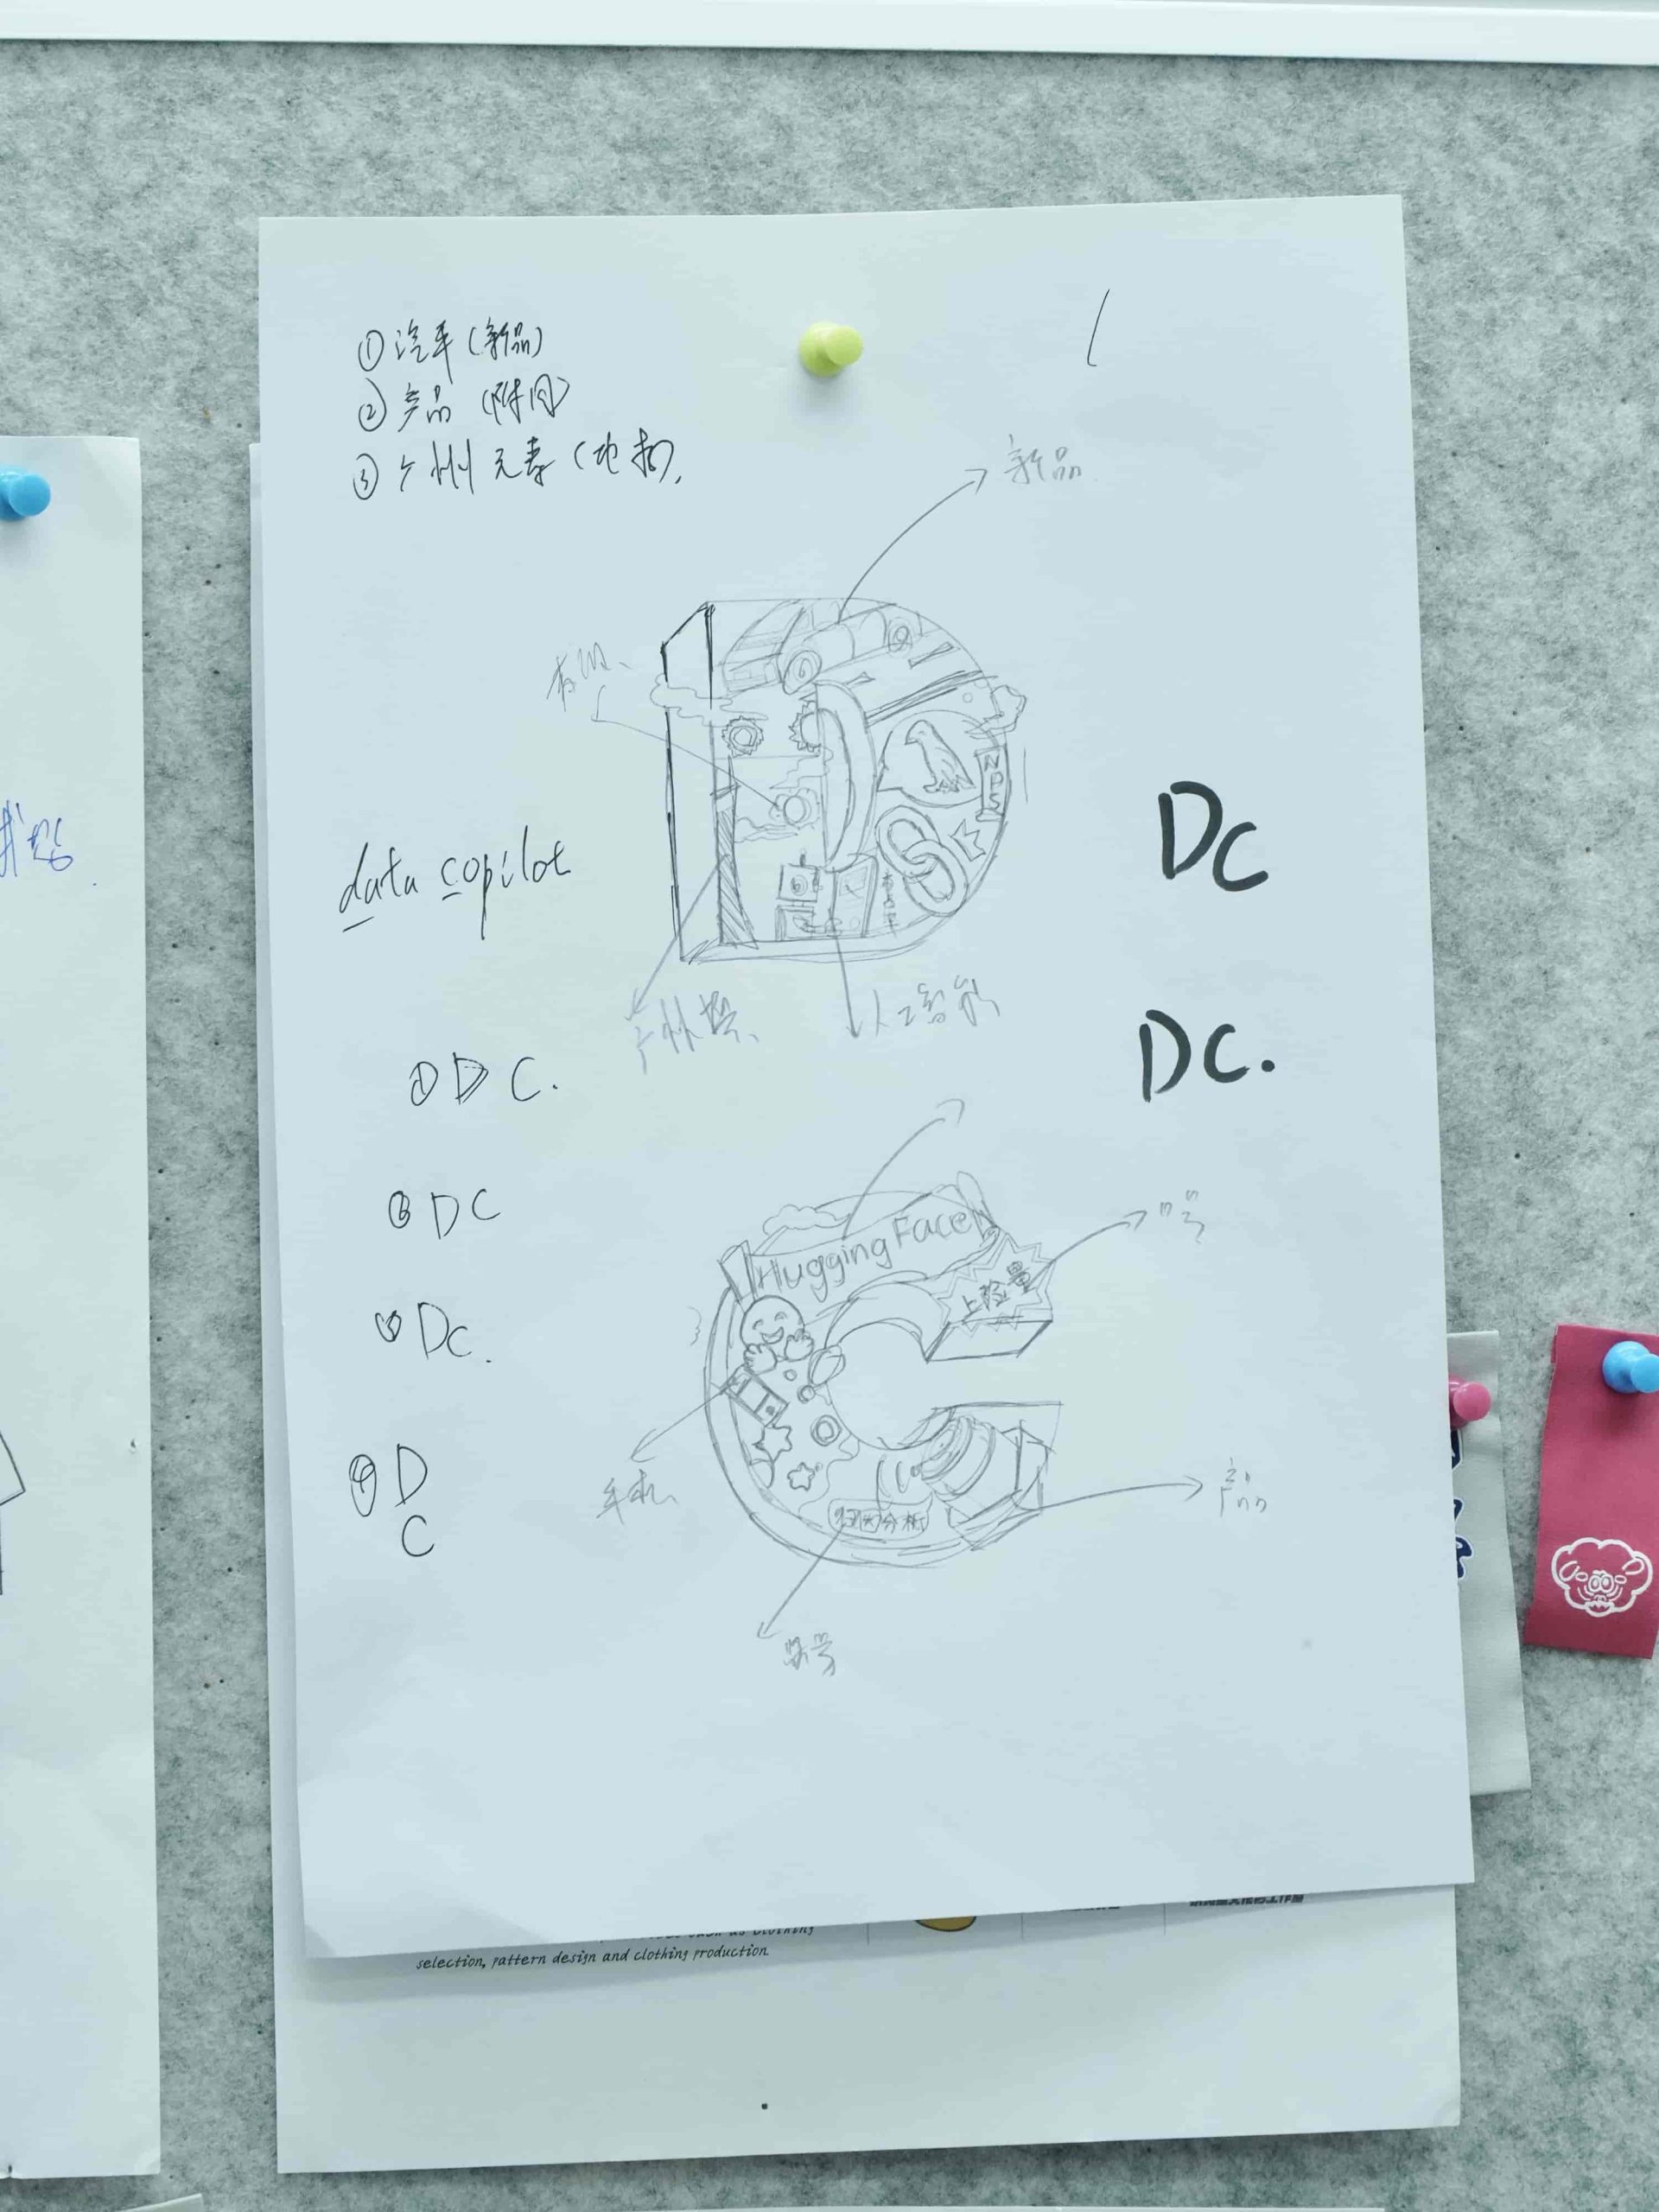 ①汽车(新品)
②产品(时间)
③广州元素(地标).
新品
NPS
data copilot
Dc
广州塔、
人工智能
DC.
①DC.
②DC
③Dc.
④D
C
Hugging Face
上险量
口号
手机、
产品
归因分析
口号
selection, pattern design and clothing production.